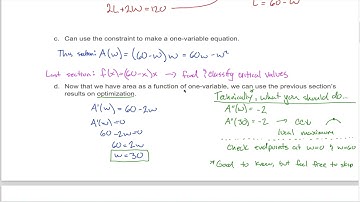 2L+2w=120
L=60-w
c. Can use the constraint to make a one-variable equation.
This section: A(w)=(60-w)w = 60w-w²
Last section: f(x)=(60-x)x → find & classify critical values
d. Now that we have area as a function of one-variable, we can use the previous section's
results on optimization.
Technically, what you should do...
A'(w)=60-2w
A'(w)=0
60-2w=0
60=2w
w=30
A"(w)=-2
A"(30)=-2 → CCD
local maximum
Check endpoints at w=0 & w=60
*Good to know, but feel free to skip